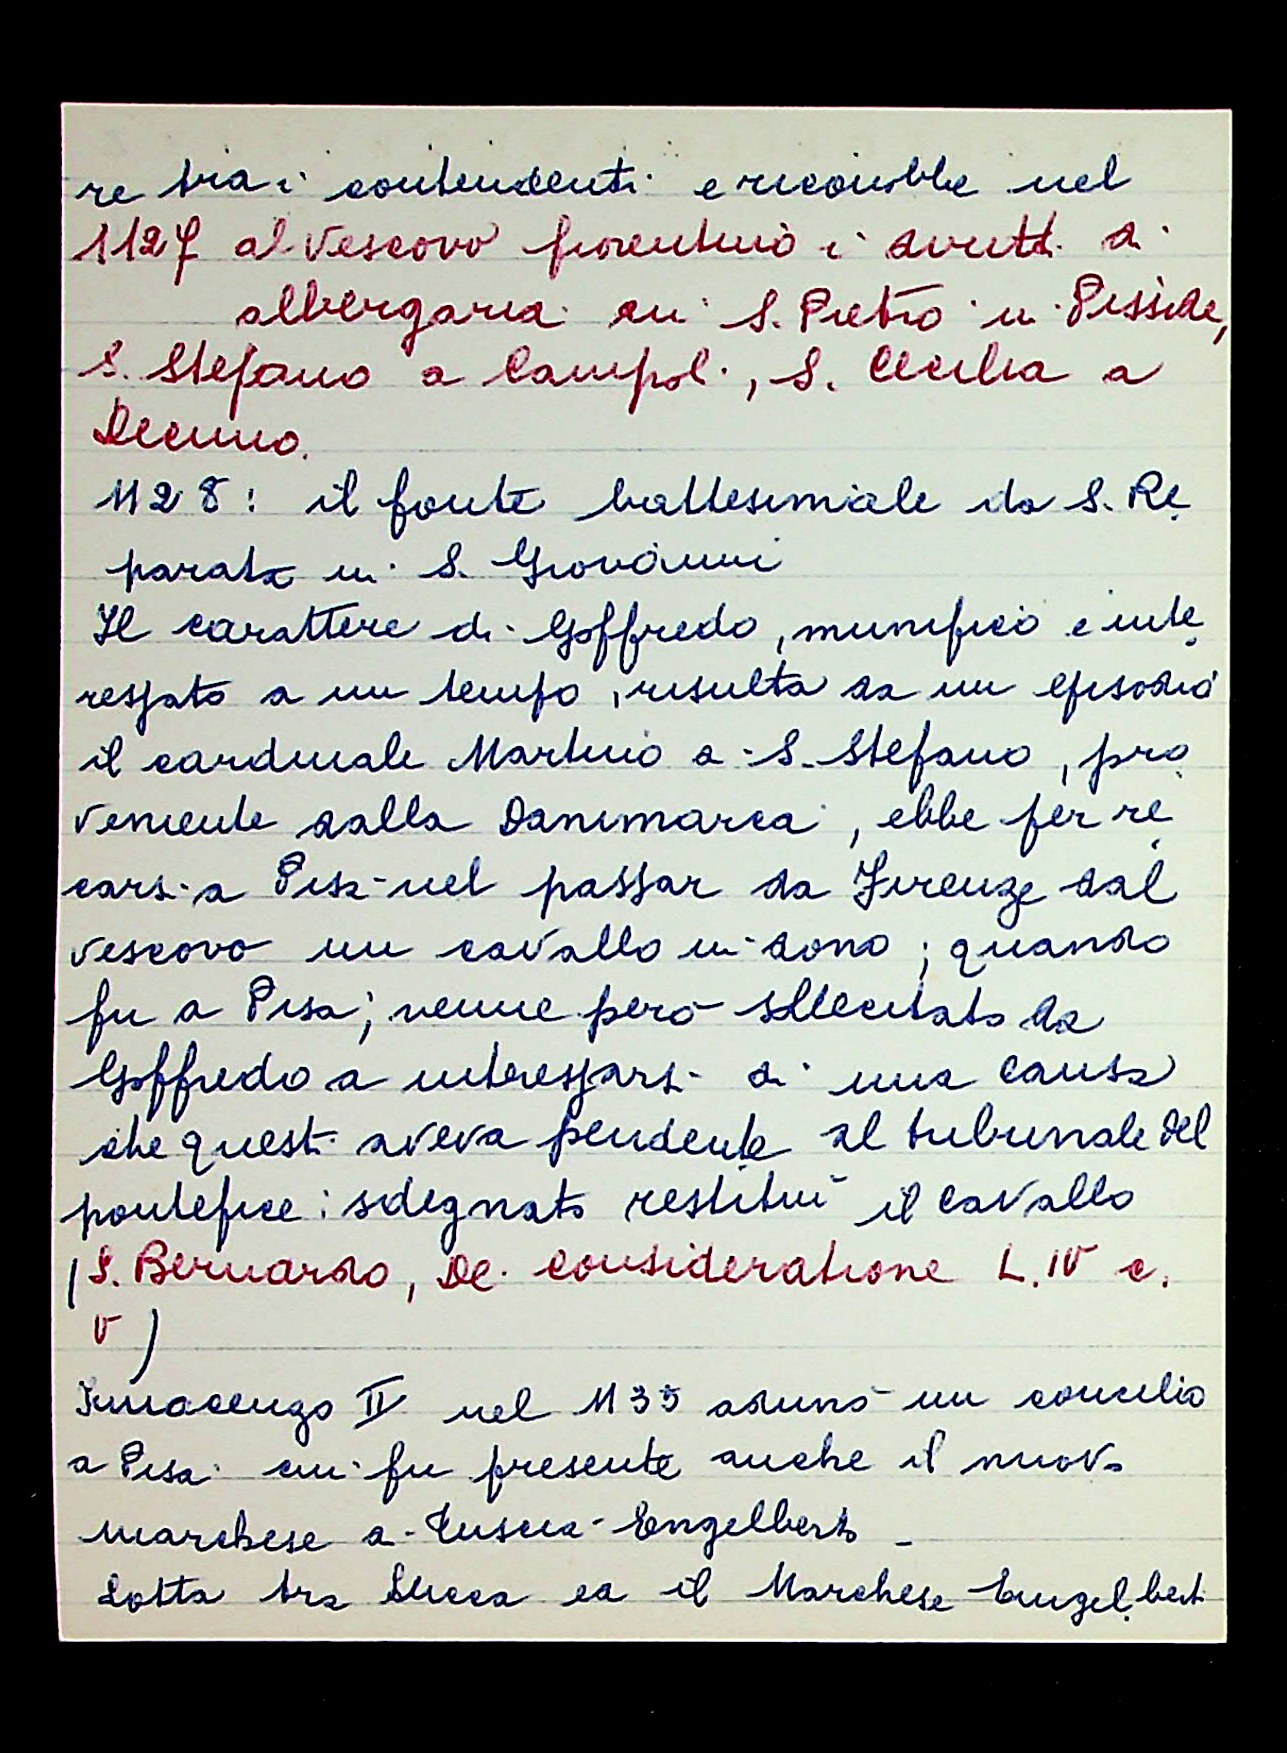 re tra i contendenti e riconobbe nel
1127 al Vescovo fiorentino i diritti di
albergaria su S. Pietro in Pisside,
S. Stefano a Campoli, S. Cecilia a
Decimo.
1128: il fonte battesimale da S. Re
parata in S. Giovanni
Il carattere di Goffredo, munifico e inte
ressato a un tempo, risulta da un episodio
il cardinale Martino di S. Stefano, pro
veniente dalla Danimarca, ebbe per re
carsi a Pisa nel passar da Firenze dal
vescovo un cavallo in dono; quando
fu a Pisa, venne però sollecitato da
Goffredo a interessarsi di una causa
che questi aveva pendente al tribunale del
pontefice: sdegnato restituì il cavallo
(S. Bernardo, De consideratione L. IV c.
V)
Innocenzo II nel 1135 adunò un concilio
a Pisa cui fu presente anche il nuovo
marchese di Tuscia Engelberto
Lotta tra Lucca ed il Marchese Engelberto